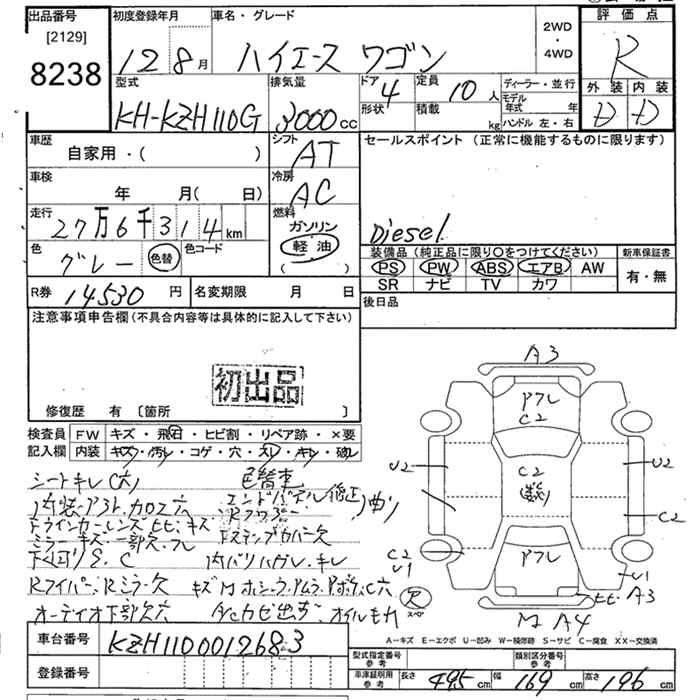 出品番号
[2129]
8238
初度登録年月
12 8月
車名・グレード
ハイエース ワゴン
2WD
・
4WD
評価点
R
外装 内装
D D
型式
KH-KZH110G
排気量
3000cc
ドア 4
形状
定員 10人
積載 kg
ディーラー・並行
モデル年式 年
ハンドル 左・右
車歴
自家用・( )
シフト
AT
セールスポイント (正常に機能するものに限ります)
Diesel
車検
年 月( 日)
冷房
AC
走行
27万6千314km
燃料
ガソリン
軽油
( )
色
グレー
色替
色コード
装備品 (純正品に限り○をつけてください)
PS PW ABS エアB AW
SR ナビ TV カワ
新車保証書
有・無
R券 14530円
名変期限 月 日
後日品
注意事項申告欄(不具合内容等は具体的に記入して下さい)
初出品
修復歴 有 [箇所 ]
検査員記入欄
FW キズ・飛石・ヒビ割・リペア跡・×要
内装 キズ・汚レ・コゲ・穴・スレ・キレ・破レ
シートキレ(穴) 色替車
内装・アフト、カロエ穴 エンドパネル修正
ドラインカーレンズヒビ、キズ
ミラーキズ・一部欠・フレ Fステップカバー欠
下廻りS、C 内バリハガレ・キレ
Rワイパー、Rミラー欠
オーディオ下部欠穴 オイルモレ
A3
アフレ
C2
U2
C2
U2
C2
C2
U1
アフレ
U1
ヒビ A3
欠
スペア
M A4
A－キズ E－エクボ U－凹み W－補修跡 S－サビ C－腐食 XX－交換済
車台番号
KZH1100012683
登録番号
型式指定番号
参考
類別区分番号
参考
車庫証明用
参考
長さ 495cm 幅 169cm 高さ 196cm